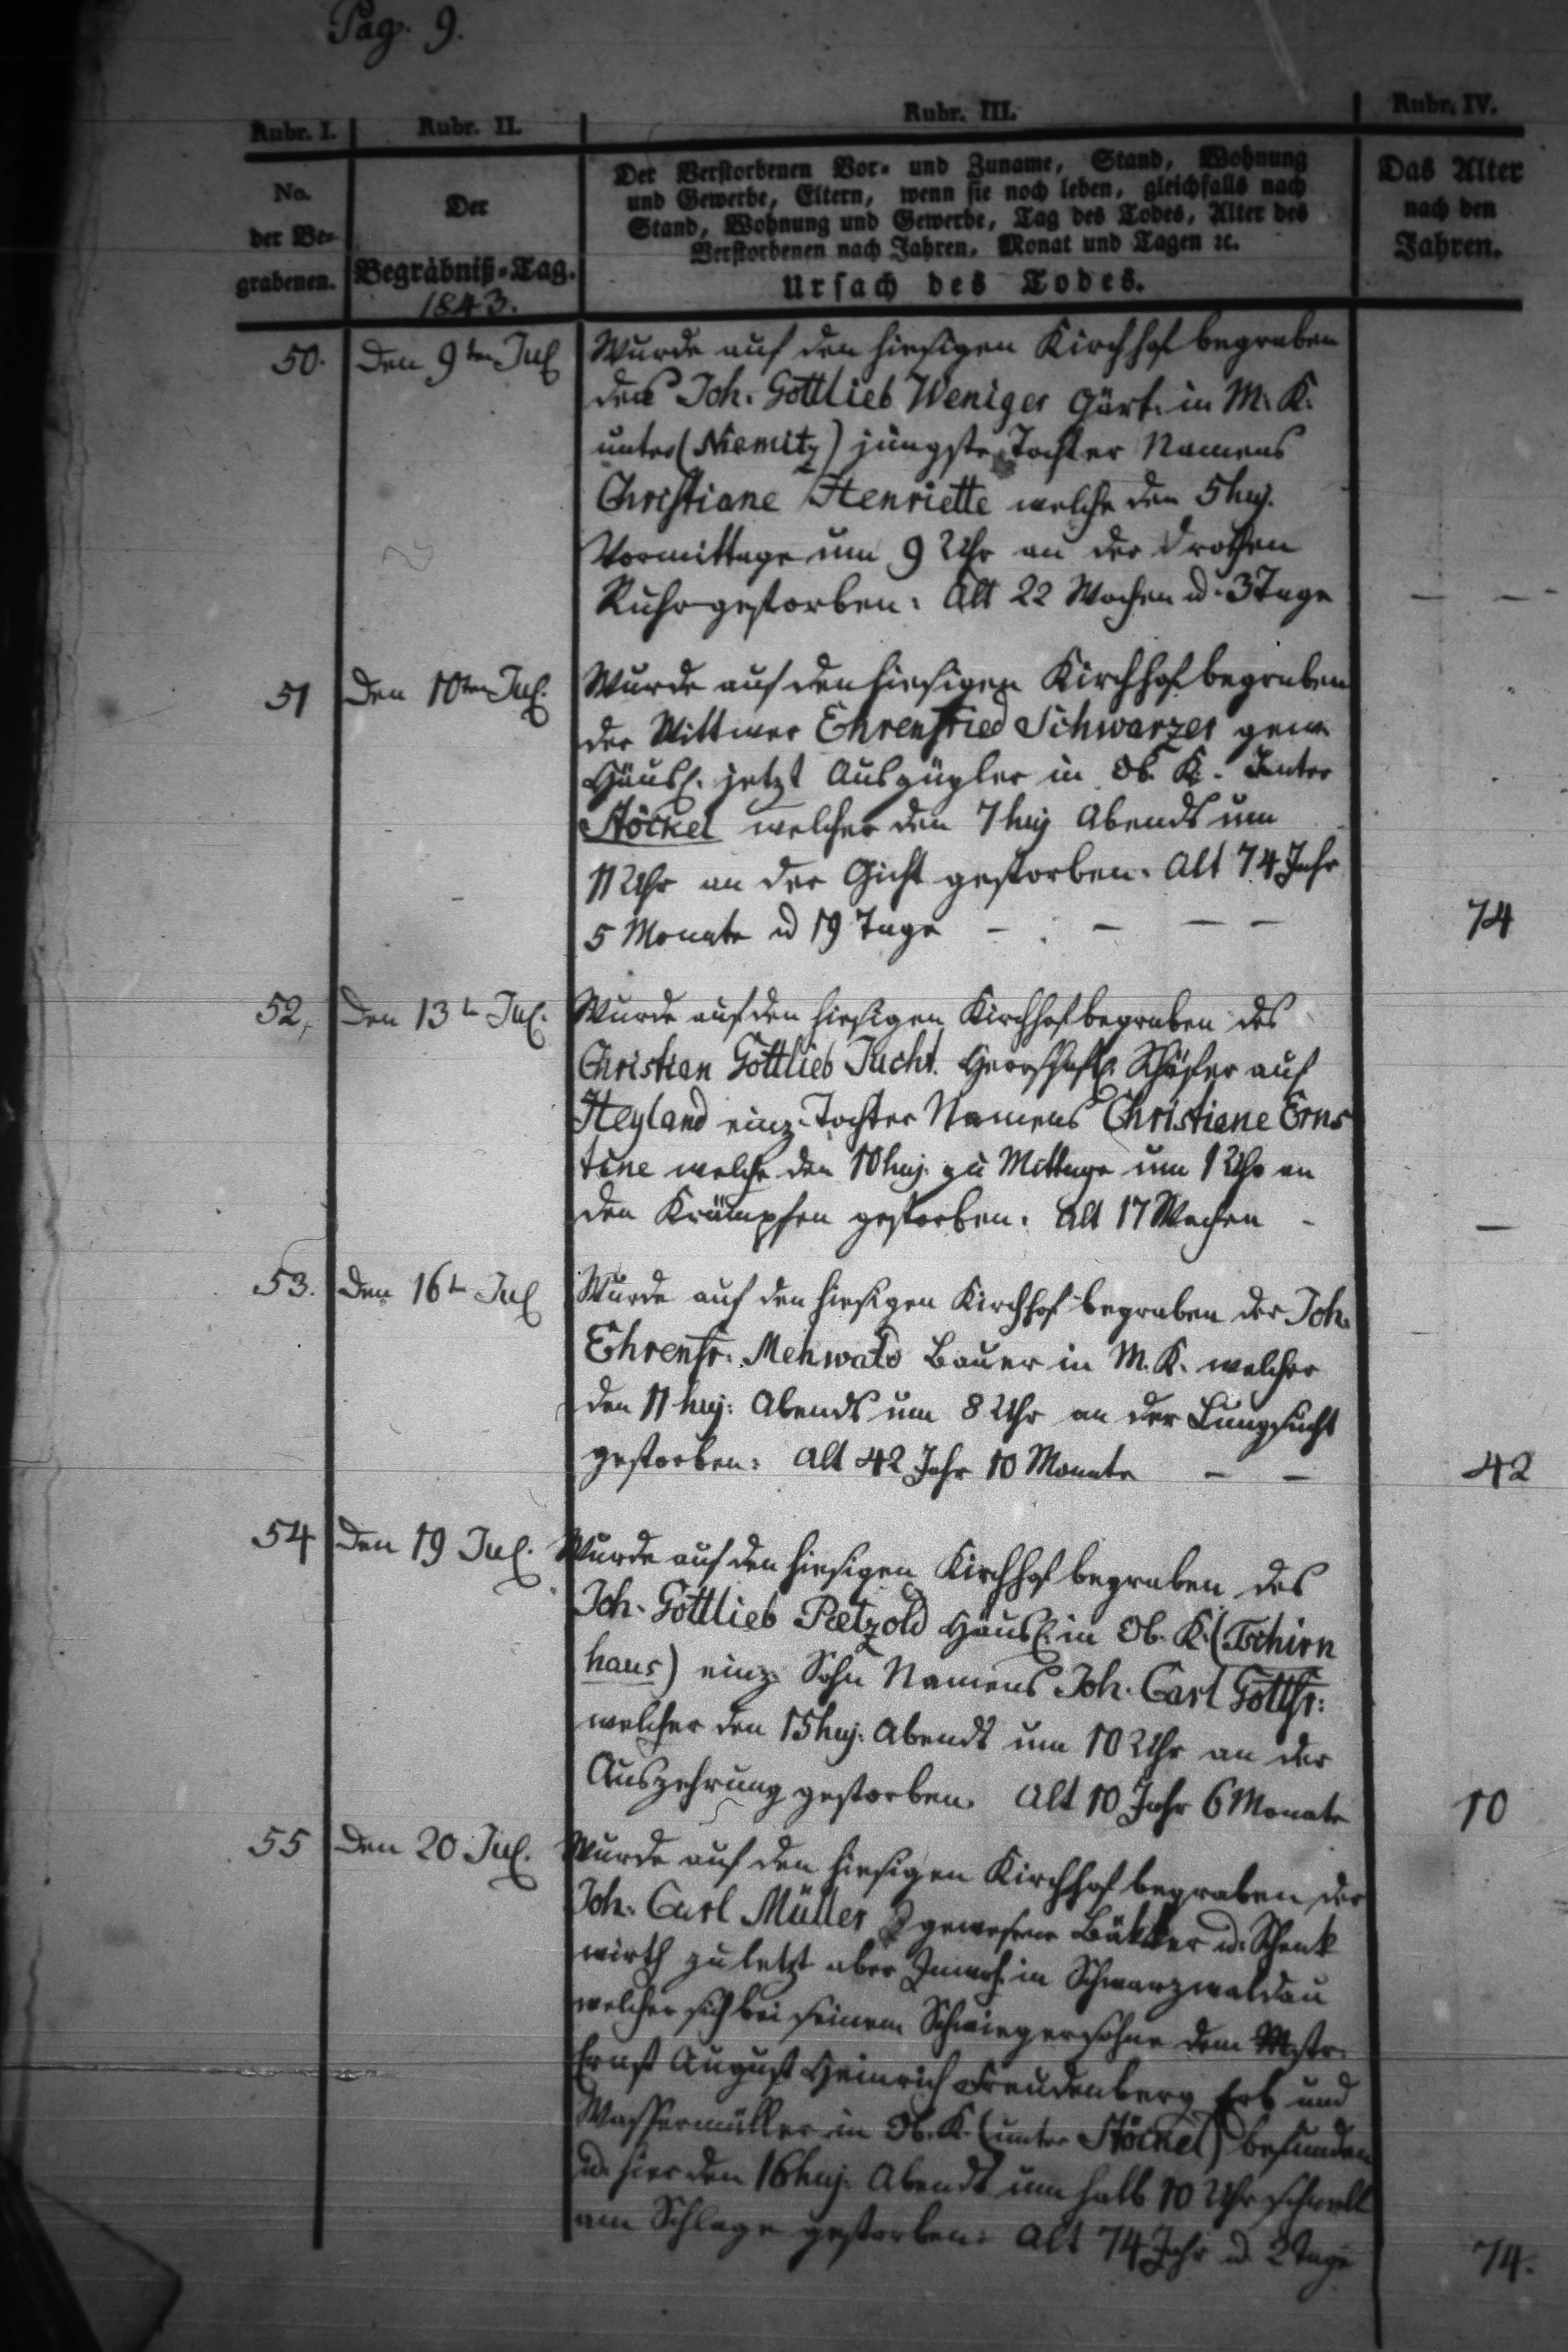 Pag. 9.
Rubr. I. Rubr. II. Rubr. III. Rubr. IV.
No.
der Be-
grabenen.
Der
Begräbniß-Tag.
1843.
Der Verstorbenen Vor- und Zuname, Stand, Wohnung
und Gewerbe, Eltern, wenn sie noch leben, gleichfalls nach
Stand, Wohnung und Gewerbe, Tag des Todes, Alter des
Verstorbenen nach Jahren, Monat und Tagen ꝛc.
Ursach des Todes.
Das Alter
nach den
Jahren.
50. Den 9ten Jul Wurde auf den hiesigen Kirchhof begraben
des Joh. Gottlieb Weniger Gärt. in M. K.
unter (Niemitz) jüngste Tochter Namens
Christiane Henriette welche den 5 huj.
Vormittage um 9 Uhr an der
Ruhr gestorben: Alt 22 Wochen u. 3 Tage — —
51 Den 10ten Jul. Wurde auf den hiesigen Kirchhof begraben
der Wittwer Ehrenfried Schwarzer gew.
Häusl. jetzt Auszügler in Ob. K. Unter
Stöckel welcher den 7 huj Abends um
11 Uhr an der Gicht gestorben. Alt 74 Jahr
5 Monate u 19 Tage — — — — 74
52, Den 13t Jul. Wurde auf den hiesigen Kirchhof begraben des
Christian Gottlieb Jucht. Herrschaftl. Schäfer auf
Heyland einz. Tochter Namens Christiane Erns
tine welche den 10 huj. zu Mittage um 1 Uhr an
den Krämpfen gestorben. Alt 17 Wochen - —
53. Den 16t Jul Wurde auf den hiesigen Kirchhof begraben der Joh.
Ehrenfr. Mehwald Bauer in M. K. welcher
den 11 huj: Abends um 8 Uhr an der Lungsucht
gestorben: Alt 42 Jahr 10 Monate — — 42
54 Den 19 Jul. Wurde auf den hiesigen Kirchhof begraben des
Joh. Gottlieb Paetzold Häusl. in Ob. K. (Tschirn
haus) einz. Sohn Namens Joh. Carl Gottfr:
welcher den 15 huj. Abends um 10 Uhr an der
Auszehrung gestorben. Alt 10 Jahr 6 Monate 10
55 Den 20 Jul. Wurde auf den hiesigen Kirchhof begraben der
Joh. Carl Müller gewesene Bäkker u. Schenk
wirth zuletzt aber Inwoh. in Schwarzwaldau
welcher sich bei seinem Schwiegersohne dem Mstr.
Ernst August Heinrich Freudenberg Erb und
Wassermüller in Ob. K. (unter Stöckel) befunden
u. hier den 16 huj. Abends um halb 10 Uhr schnell
am Schlage gestorben: Alt 74 Jahr u. 2 Tage 74.